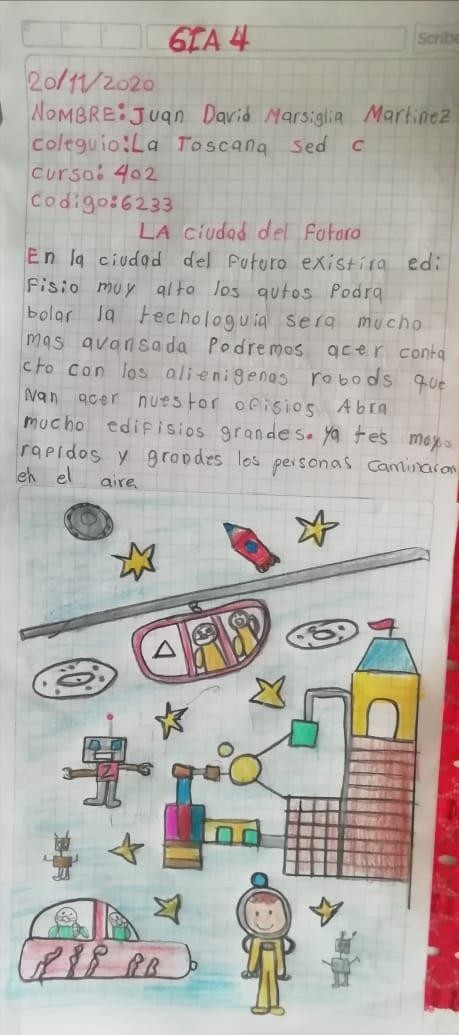 GIA 4
Scribe
20/11/2020
NOMBRE: Juan David Marsiglia Martinez
coleguio: La Toscana sed c
curso: 402
codigo: 6233
LA ciudad del Fotoro
En la ciudad del Futuro existira edi
Fisio muy alto los autos Podra
bolar la techologuia sera mucho
mas avansada Podremos acer conta
cto con los alienigenas robods que
van acer nuestor ofisios Abra
mucho edifisios grandes. ya tes moy
rapidos y grandes los personas caminaran
en el aire.
Z